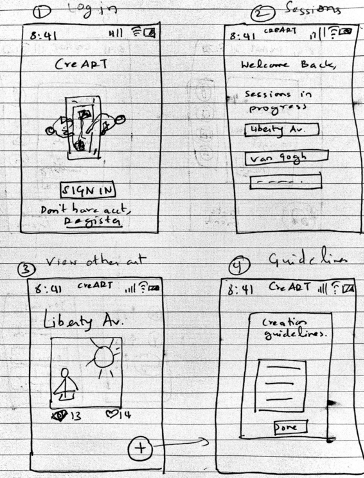 ① Login
8:41
CreART
SIGN IN
Don't have acct,
Register
② Sessions
8:41 CreART
Welcome Back,
Sessions in
progress
Liberty Av.
Van Gogh
③ View other art
8:41 CreART
Liberty Av.
13 14
+
④ Guidelines
8:41 CreART
Creation
guidelines.
Done